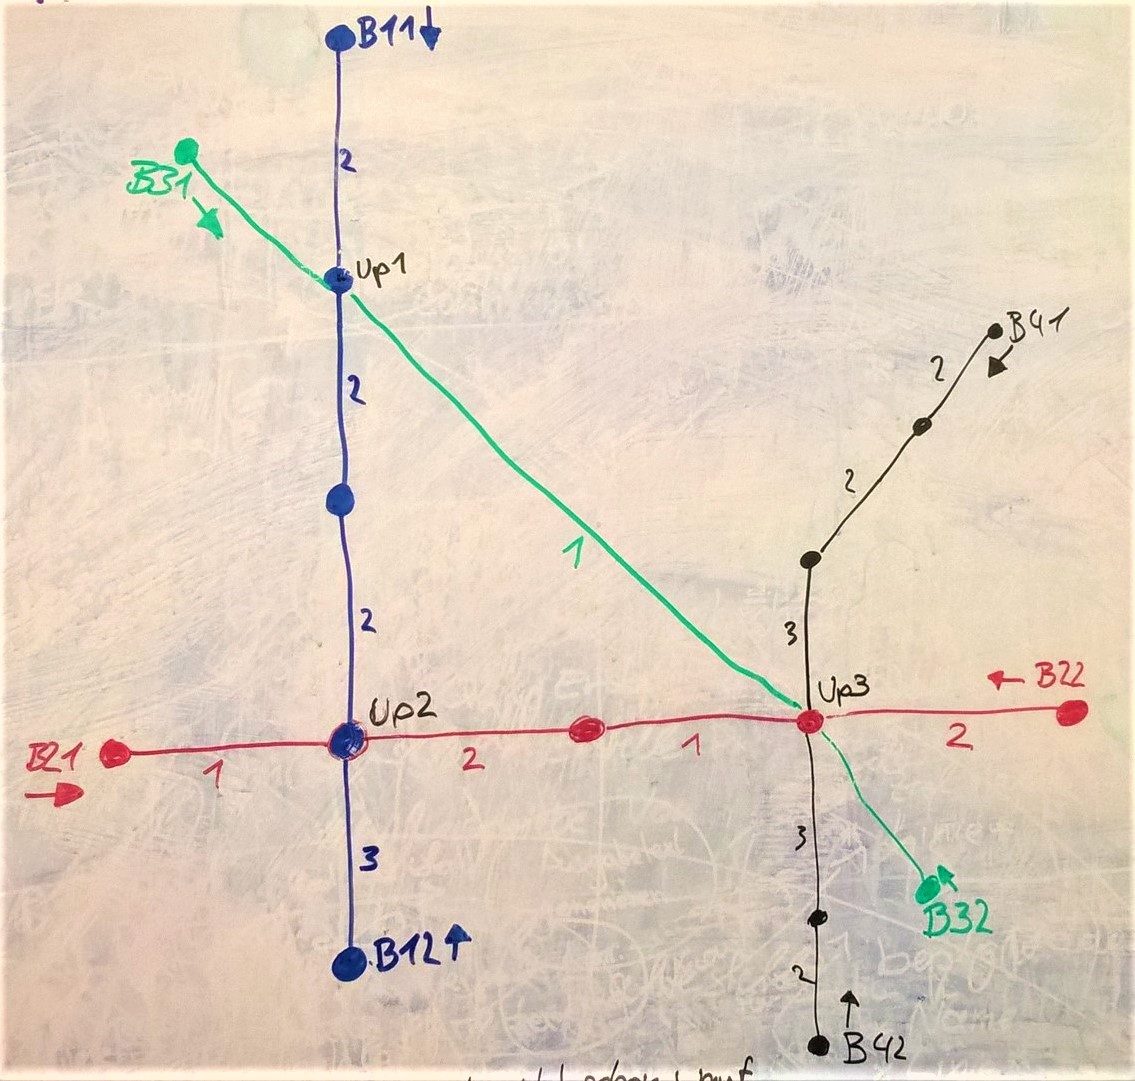 B11
2
B31
Up1
B41
2
2
2
1
2
3
Up3
B22
Up2
B21
1
2
1
2
3
3
B32
B12
2
B42